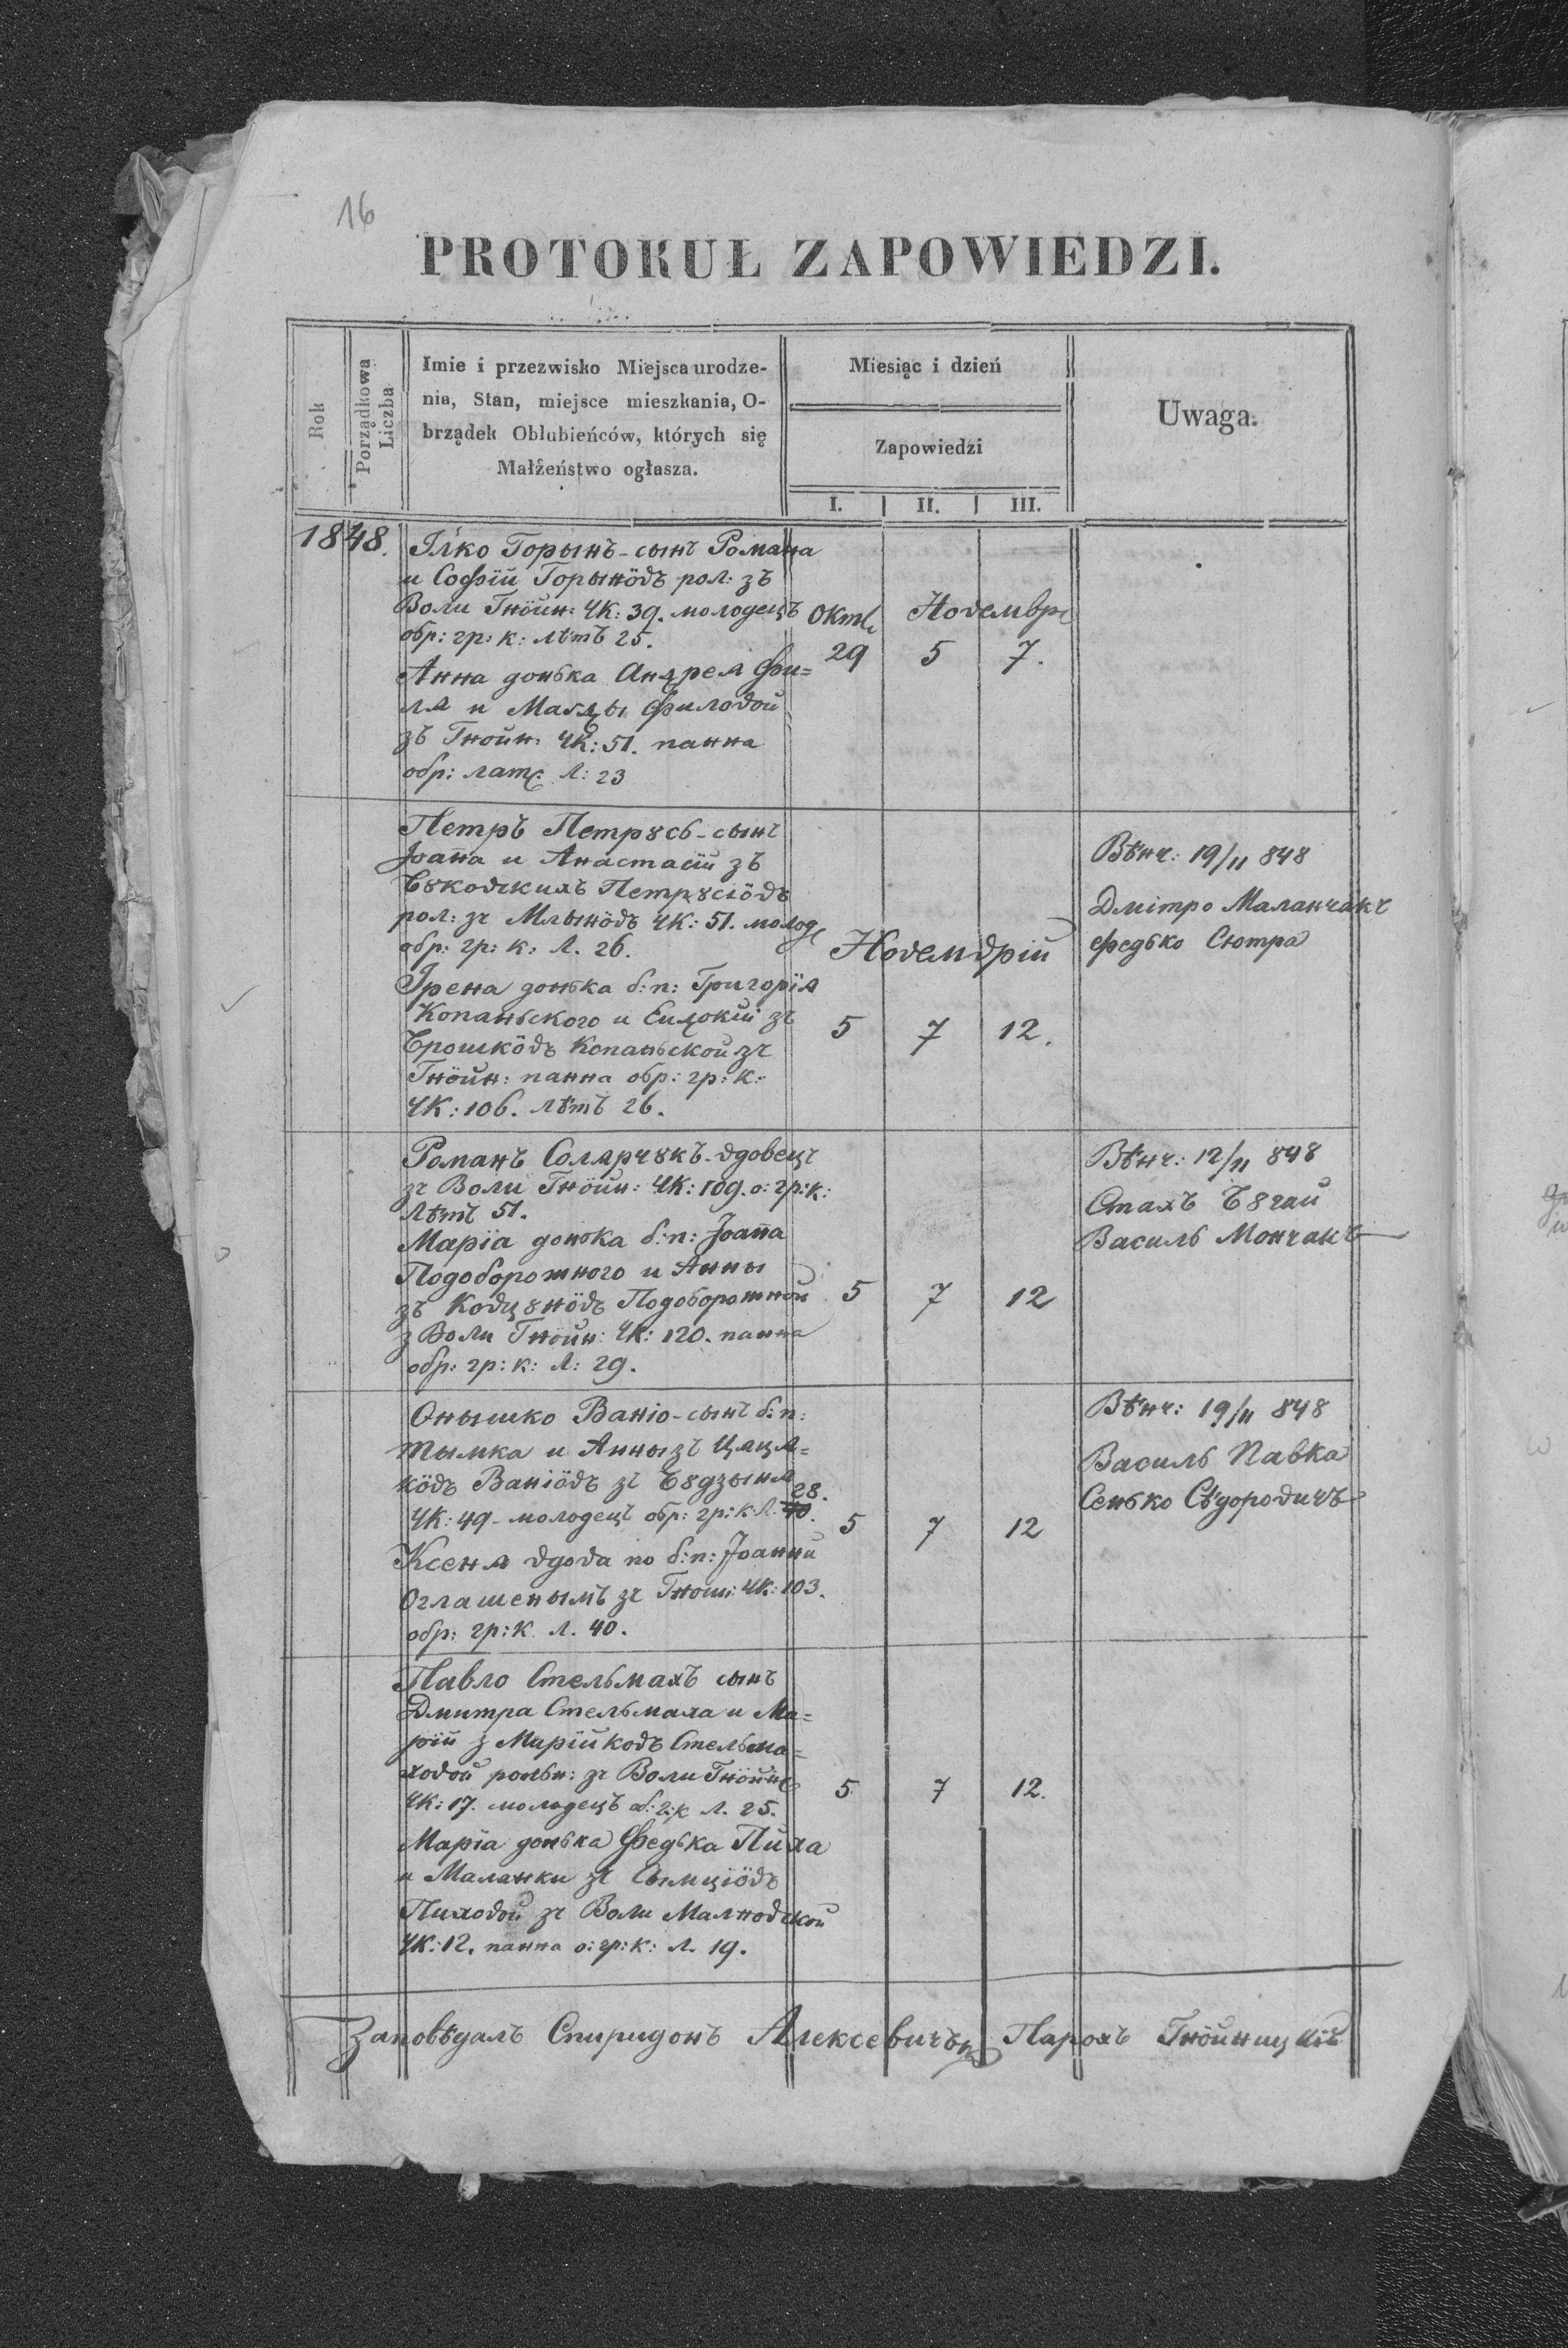 16
PROTOKUŁ ZAPOWIEDZI.
Rok
Porządkowa Liczba
Imie i przezwisko Miejsca urodze-
nia, Stan, miejsce mieszkania, O-
brządek Oblubieńców, których się
Małżeństwo ogłasza.
Miesiąc i dzień
Zapowiedzi
I. II. III.
Uwaga.
1848.
Ілко Горынъ - сынъ Романа
и Софїи Горынôвъ рол: зъ
Воли Гнôин: ЧК: 39. молодецъ
обр: гр: к: лѣтъ 25.
Анна донька Андрея Фи=
ля и Магды Филовой
зъ Гнойн: ЧК: 51. панна
обр: лат: Л: 23
Окт: Новембра
29 5 7.
Петръ Петрꙋсь - сынъ
Іоанна и Анастасїи зъ
Бꙋковскихъ Петрꙋсїôвъ
рол: зъ Млынôвъ ЧК: 51. молод
обр: гр: к: Л. 26.
Ірена донька б: п: Григорїя
Копаньского и Евдокїи зъ
Ярошкôвъ Копаньской зъ
Гнôйн: панна обр: гр: к:
ЧК: 106. лѣтъ 26.
Новемврїй
5 7 12.
Вѣнч: 19/11 848
Дмітро Маланчакъ
Федько Сютра
Романъ Солярчꙋкъ - вдовецъ
зъ Воли Гнôйн: ЧК: 109. о: гр: к:
Лѣтъ 51.
Марїа донька б: п: Іоанна
Подоборожного и Анны
зъ Ковцꙋнôвъ Подоборожной
з Воли Гнôйн: ЧК: 120. панна
обр: гр: к: Л: 29.
5 7 12
Вѣнч: 12/11 848
Стахъ Бꙋгай
Василь Мончакъ
Онышко Ваньо - сынъ б: п:
Тымка и Анны зъ Цяця=
кôвъ Ваньôвъ зъ Бꙋдзыня
ЧК: 49 - молодецъ обр: гр: к: Л. 40. 28.
Ксеня вдова по б: п: Іоанни
Оглашенымъ зъ Гнои: ЧК: 103.
обр: гр: к Л. 40.
5 7 12
Вѣнч: 19/11 848
Василь Павка
Сенько Сѣдоровичъ
Павло Стельмахъ сынъ
Дмитра Стельмаха и Ма=
рїи з Марїйковъ Стельма=
ховой рольн: зъ Воли Гнôйн
ЧК: 17. молодецъ об: г: к Л. 25.
Марїа донька Федька Пиха
и Маланки зъ
Пиховой зъ Воли Малновской
ЧК: 12. панна о: гр: к: Л. 19.
5 7 12.
Заповѣдалъ Спиридонъ Алексевичъ Парохъ Гнôйницкїй